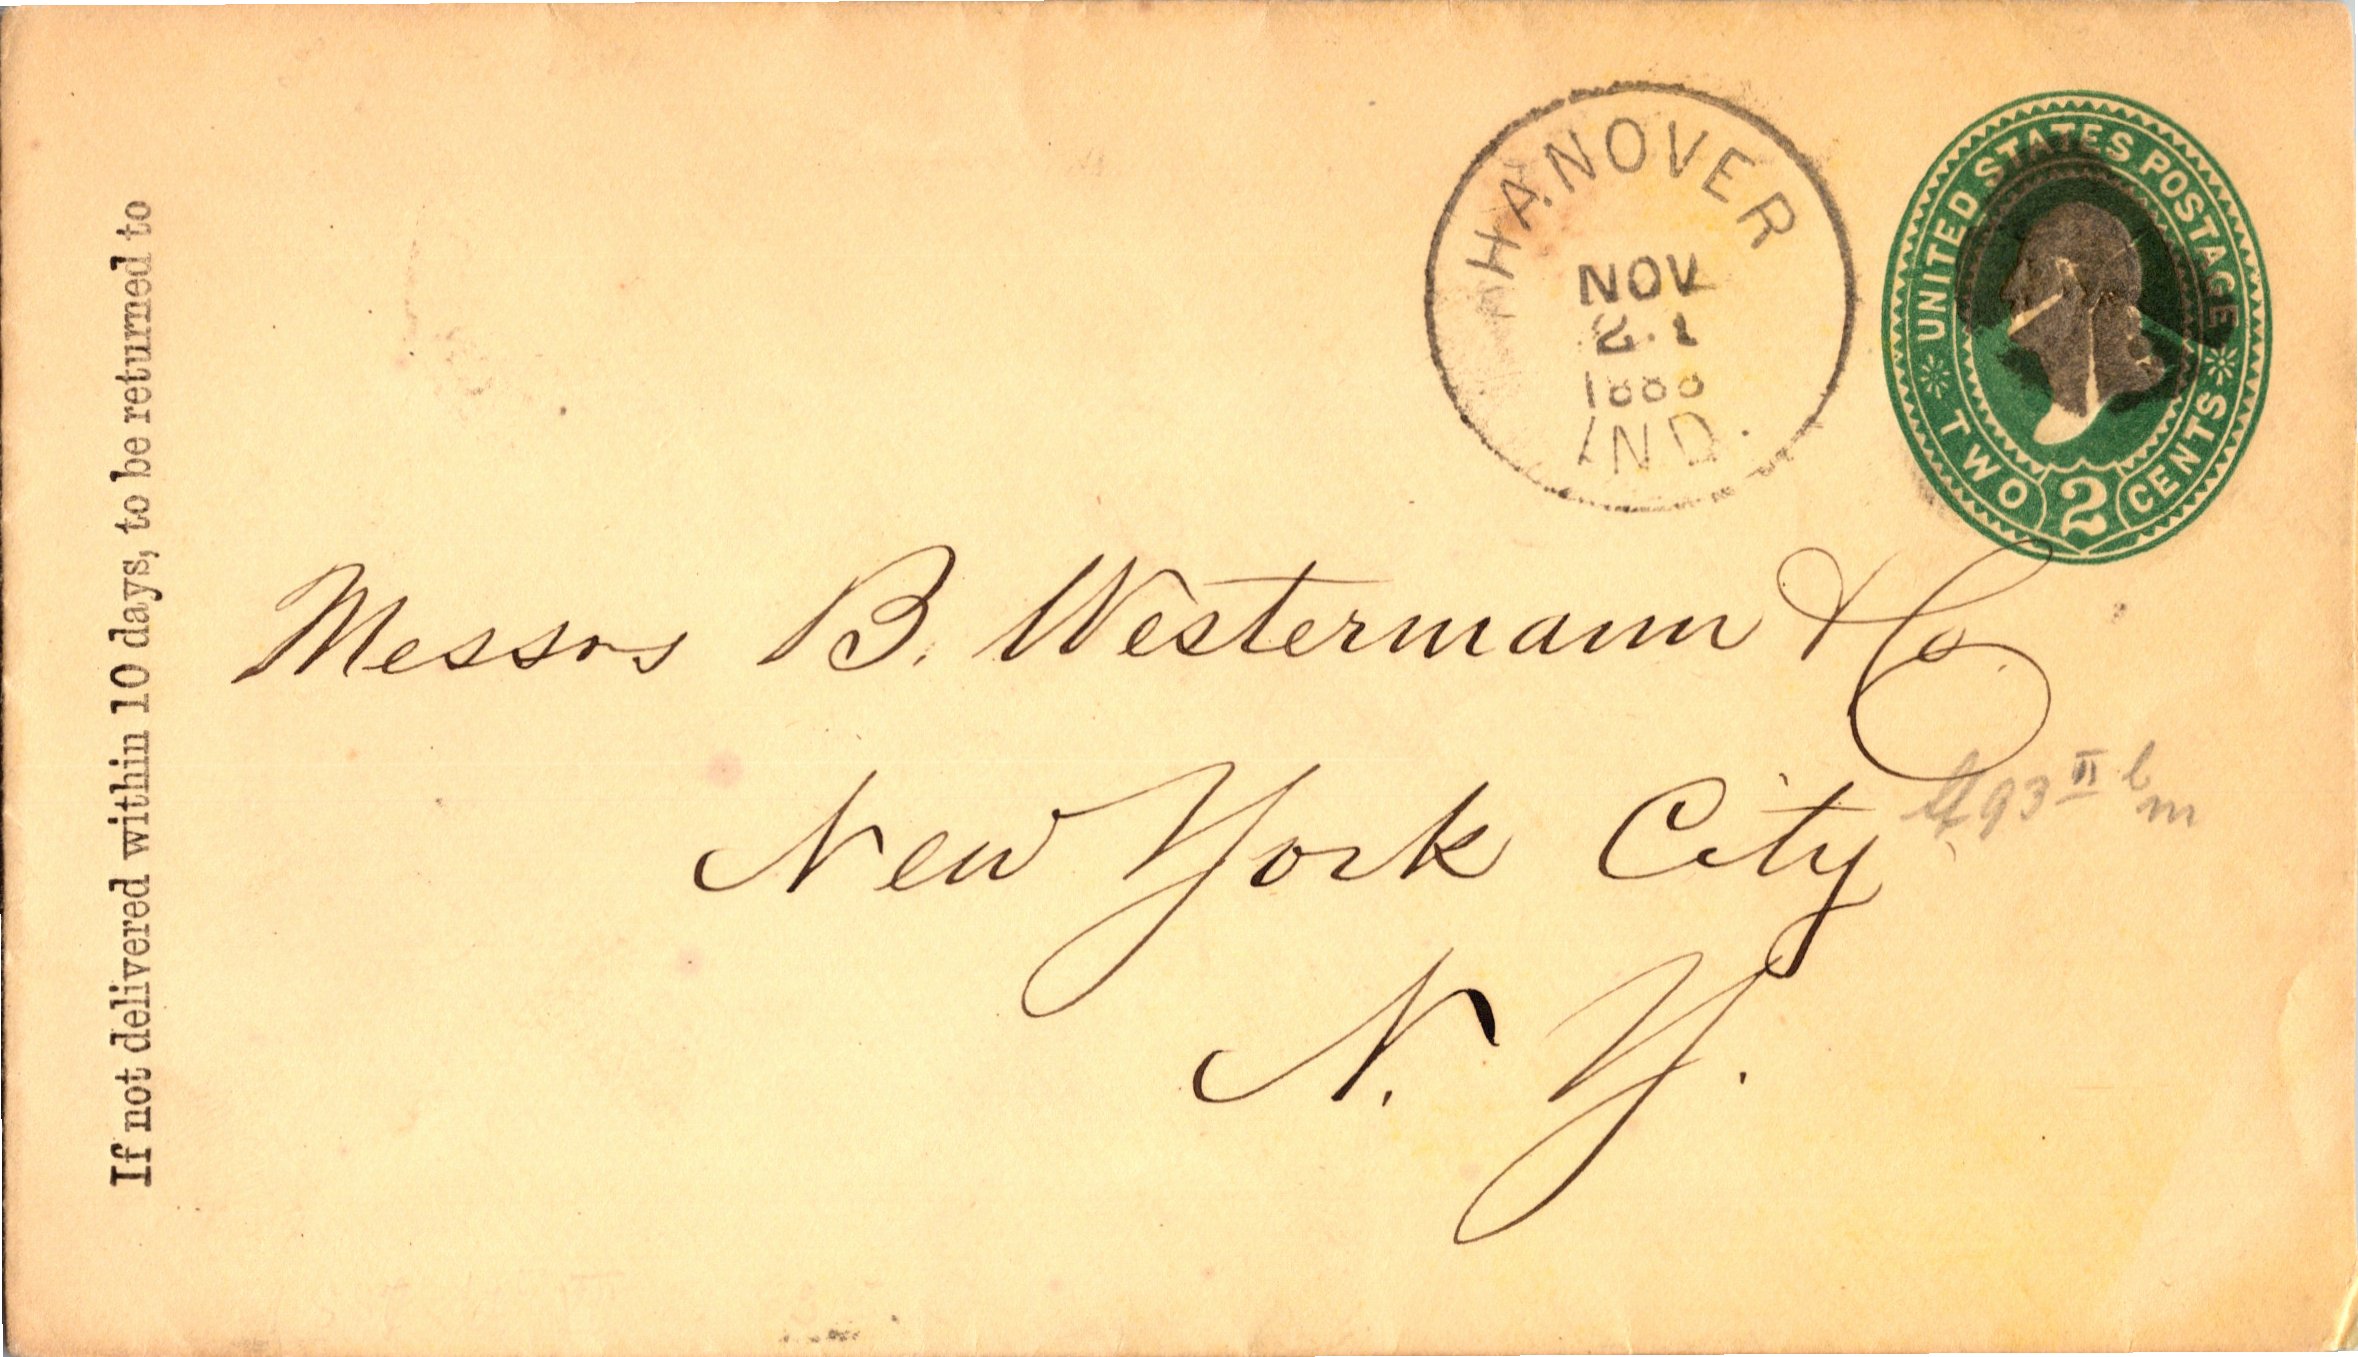 If not delivered within 10 days, to be returned to
HANOVER
NOV
21
1888
IND.
UNITED STATES POSTAGE
TWO 2 CENTS
Messrs B. Westermann & Co.
New York City
N. Y.
93 II b
m